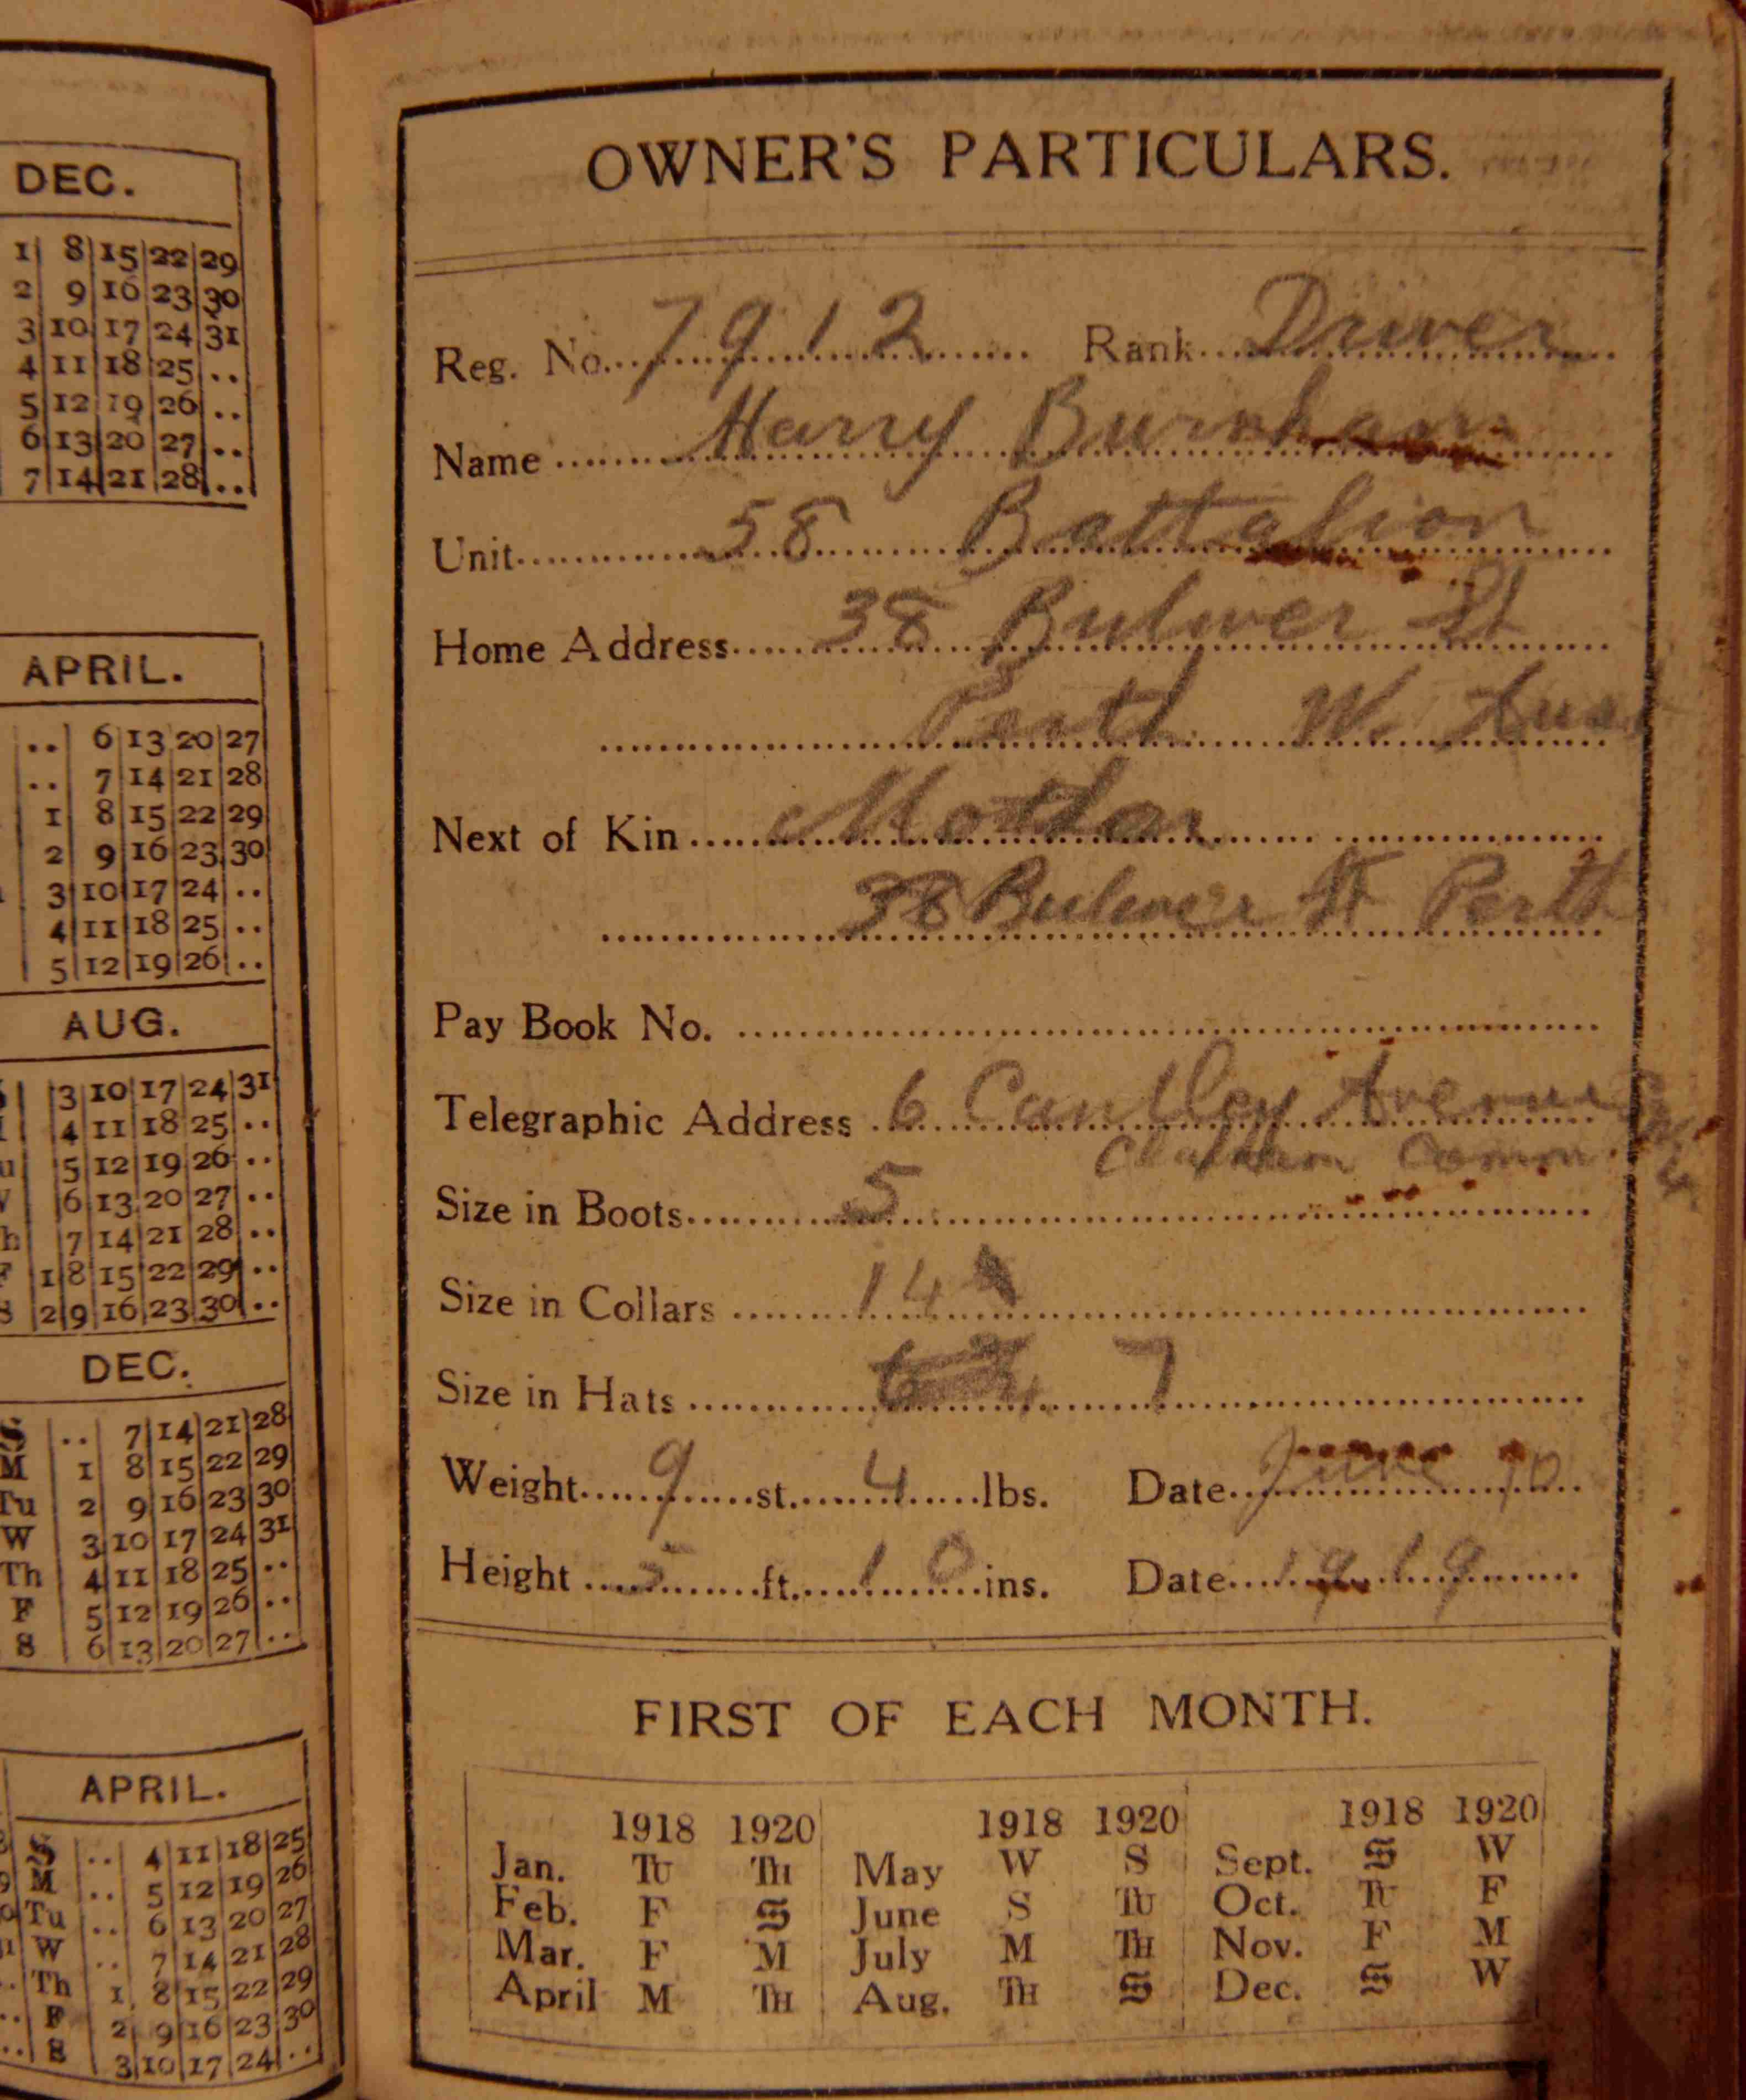 DEC.
1 8 15 22 29
2 9 16 23 30
3 10 17 24 31
4 11 18 25 ..
5 12 19 26 ..
6 13 20 27 ..
7 14 21 28 ..
APRIL.
.. 6 13 20 27
.. 7 14 21 28
1 8 15 22 29
2 9 16 23 30
3 10 17 24 ..
4 11 18 25 ..
5 12 19 26 ..
AUG.
3 10 17 24 31
4 11 18 25 ..
5 12 19 26 ..
6 13 20 27 ..
h 7 14 21 28 ..
F 1 8 15 22 29 ..
S 2 9 16 23 30 ..
DEC.
S .. 7 14 21 28
M 1 8 15 22 29
Tu 2 9 16 23 30
W 3 10 17 24 31
Th 4 11 18 25 ..
F 5 12 19 26 ..
S 6 13 20 27 ..
APRIL.
S .. 4 11 18 25
M .. 5 12 19 26
Tu .. 6 13 20 27
W .. 7 14 21 28
Th 1 8 15 22 29
F 2 9 16 23 30
S 3 10 17 24 ..
OWNER'S PARTICULARS.
Reg. No. 7912 Rank Driver
Name Harry Burnham
Unit 58 Battalion
Home Address 38 Bulwer St
Perth W. Aus
Next of Kin Mother
38 Bulwer St Perth
Pay Book No.
Telegraphic Address 6 Cantley Avenue
Clapham Comm
Size in Boots 5
Size in Collars 14
Size in Hats 7
Weight 9 st. 4 lbs. Date June 10
Height 5 ft. 10 ins. Date 1919
FIRST OF EACH MONTH.
1918 1920 1918 1920 1918 1920
Jan. TU TH May W S Sept. S W
Feb. F S June S TU Oct. TU F
Mar. F M July M TH Nov. F M
April M TH Aug. TH S Dec. S W